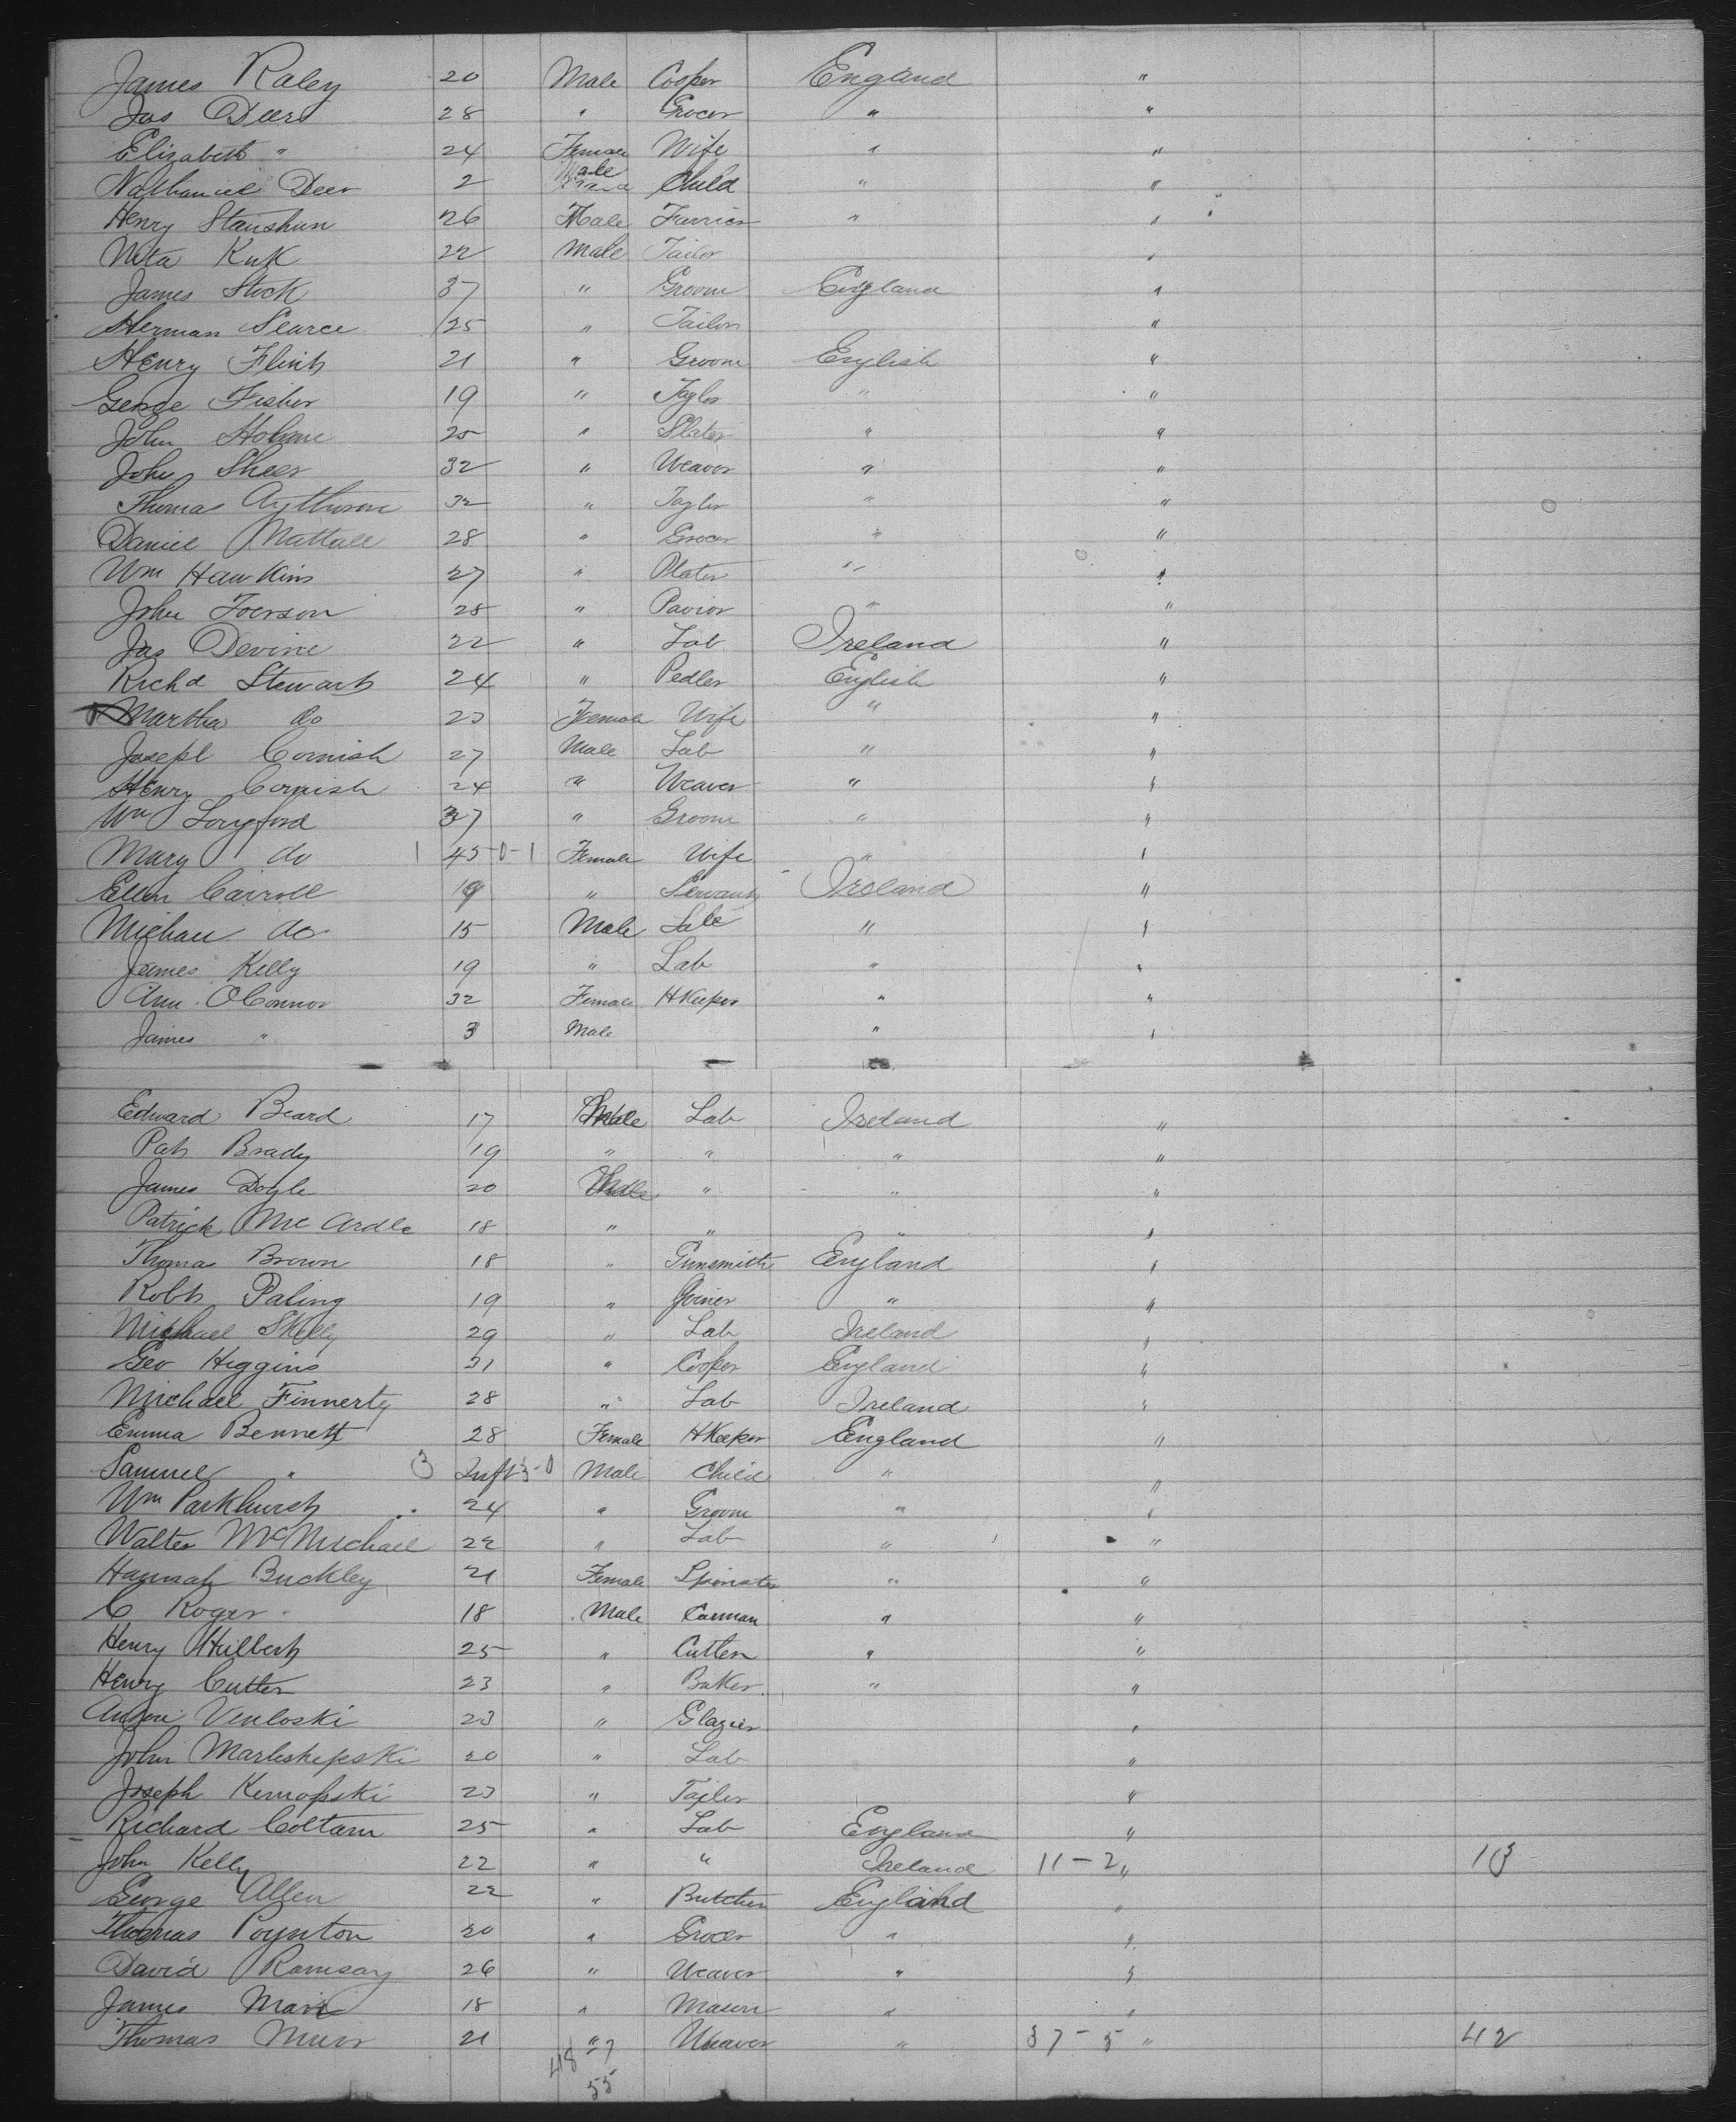 James Raley 20 Male Cooper England "
Jas Deer 28 " Grocer " "
Elizabeth " 24 Female Wife " "
Nathaniel Deer 2 Male Child " "
Henry Stanshun 26 Male Furrier " "
Kuk 22 Male Tailor "
James Stock 37 " Groom England "
Herman Searce 25 " Tailor "
Henry Flint 21 " Groom English "
George Fisher 19 " Taylor " "
John Holme 25 " Slater " "
John Sheer 32 " Weaver " "
Thomas 32 " Taylor " "
Daniel Nattall 28 " Grocer " "
Wm Hawkins 27 " Plater " "
John Foerson 28 " Pavior " "
Jas Devine 22 " Lab Ireland "
Richd Stewart 24 " Pedler English "
Martha do 23 Female Wife " "
Joseph Cornish 27 Male Lab " "
Henry Cornish 24 " Weaver " "
Wm Longford 37 " Groom " "
Mary do 1 45-0-1 Female Wife " "
Ellen Carroll 19 " Servant Ireland "
Michael do 15 Male Lab " "
James Kelly 19 " Lab " "
Ann OConnor 32 Female HKeeper " "
James " 3 Male " "
Edward Beard 17 Male Lab Ireland "
Pat Brady 19 " " " "
James Doyle 20 Male " " "
Patrick Mc Ardle 18 " " " "
Thomas Brown 18 " Gunsmith England "
Robt Paling 19 " Joiner " "
Michael Skelly 29 " Lab Ireland "
Geo Higgins 31 " Cooper England "
Michael Finnerty 28 " Lab Ireland "
Emma Bennett 28 Female HKeeper England "
Samuel " 3 Inft 3-0 Male Child " "
Wm Parkhurst 24 " Groom " "
Walter McMichael 22 " Lab " "
Hannah Buckley 21 Female Spinster " "
C Roger 18 Male Carman " "
Henry Hilbert 25 " Cutter " "
Henry Cutter 23 " Baker " "
Venloski 23 " Glazier "
John Marleshepski 20 " Lab "
Joseph Kemopski 23 " Tailer "
Richard Coltam 25 " Lab England "
John Kelly 22 " " Ireland 11-2 " 13
George Allen 22 " Butcher England "
Thomas Poynton 20 " Grocer " "
David Ramsay 26 " Weaver " "
James Mair 18 " Mason " "
Thomas Muir 21 " Weaver " 37-5 " 42
48 27
55